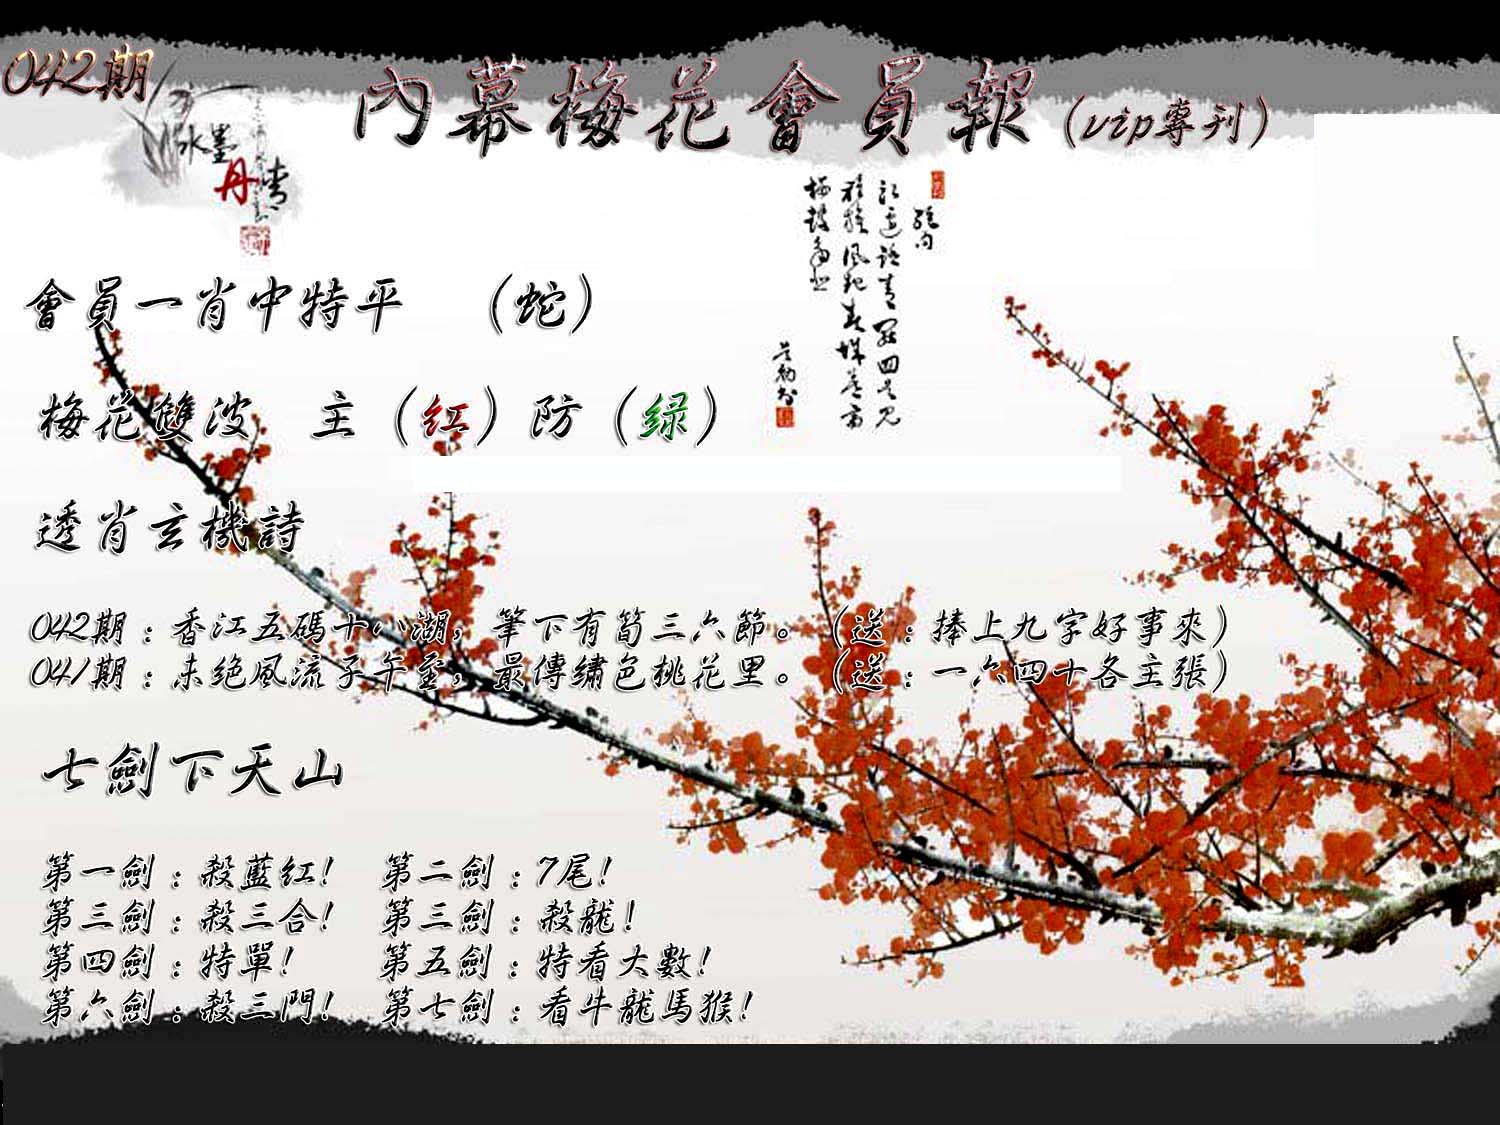 042期
內幕梅花會員報(vip專刊)
水墨
丹青
會員一肖中特平 (蛇)
梅花雙波 主(红)防(绿)
透肖玄機詩
042期:香江五碼十八湖,筆下有筍三六節。(送:捧上九字好事來)
041期:未绝風流子午至,最傳繡色桃花里。(送:一六四十各主張)
七劍下天山
第一劍:殺藍红! 第二劍:7尾!
第三劍:殺三合! 第三劍:殺龍!
第四劍:特單! 第五劍:特看大數!
第六劍:殺三門! 第七劍:看牛龍馬猴!